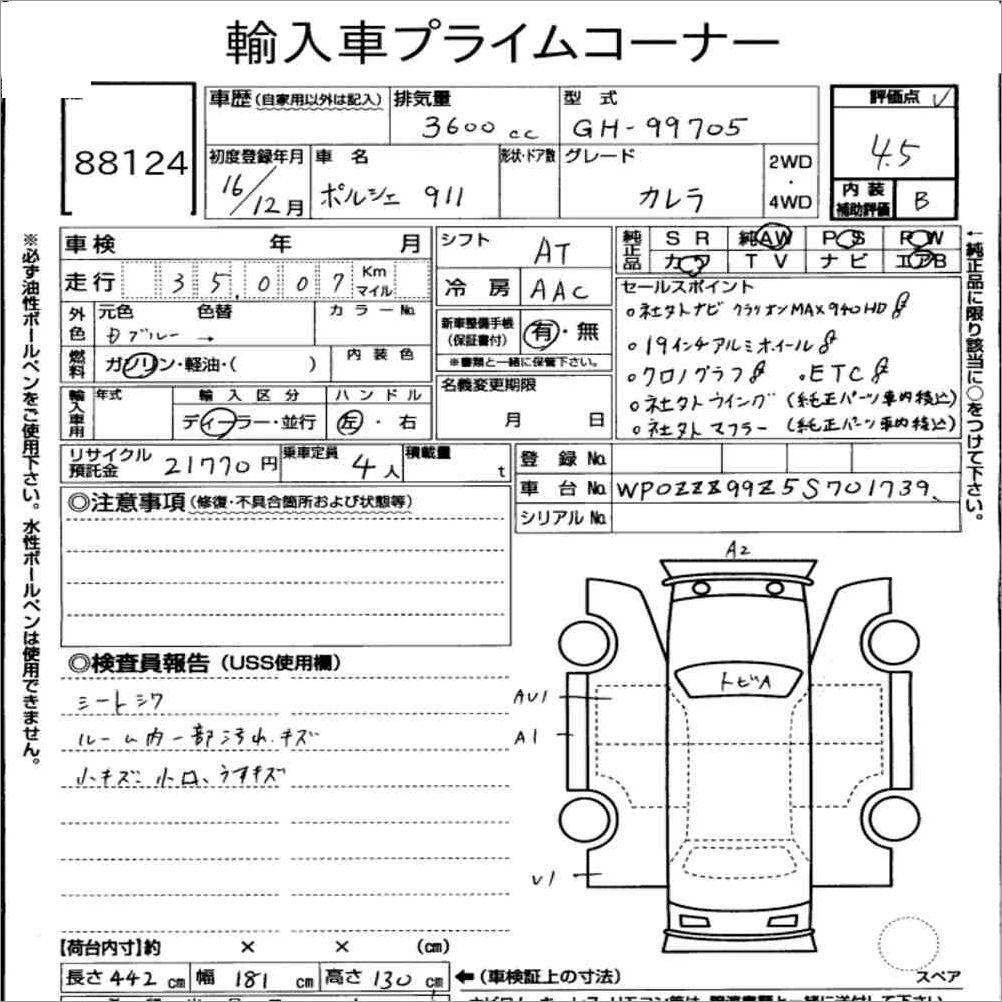 輸入車プライムコーナー
88124
車歴(自家用以外は記入) 排気量 3600cc 型式 GH-99705
初度登録年月 16/12月 車名 ポルシェ 911 形状・ドア数 グレード カレラ 2WD・4WD
評価点 4.5
内装補助評価 B
車検 年 月
走行 35,007 Km マイル
外色 元色 色替 カラーNo.
ブルー →
燃料 ガソリン・軽油・( ) 内装色
輸入車用 年式 輸入区分 ディーラー・並行 ハンドル 左・右
リサイクル預託金 21770円 乗車定員 4人 積載量 t
シフト AT
冷房 AAC
新車整備手帳(保証書付) 有・無
※書類と一緒に保管下さい。
名義変更期限
月 日
純正品 SR 純AW PS PW
カワ TV ナビ エアB
セールスポイント
○社外ナビ クラリオンMAX940HD
○19インチアルミホイール
○クロノグラフ ・ETC
○社外ウイング (純正パーツ車内積込)
○社外マフラー (純正パーツ車内積込)
登録No.
車台No. WP0ZZZ99Z5S701739
シリアルNo.
※必ず油性ボールペンをご使用下さい。水性ボールペンは使用できません。
←純正品に限り該当に○をつけて下さい。
◎注意事項(修復・不具合箇所および状態等)
◎検査員報告(USS使用欄)
シートシワ
ルーム内一部汚れ、キズ
小キズ、小凹、うすキズ
A2
トビA
AU1
A1
U1
スペア
【荷台内寸】約 × × (cm)
長さ 442cm 幅 181cm 高さ 130cm ←(車検証上の寸法)